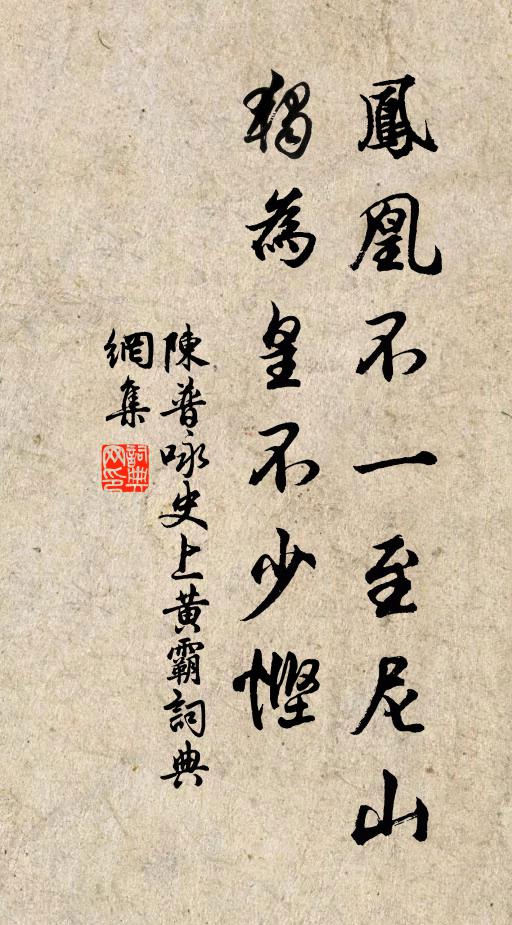 鳳凰不一至尼山
獨為皇不少慳
陳普咏史上黃霸詞典
網集
詞典
网印